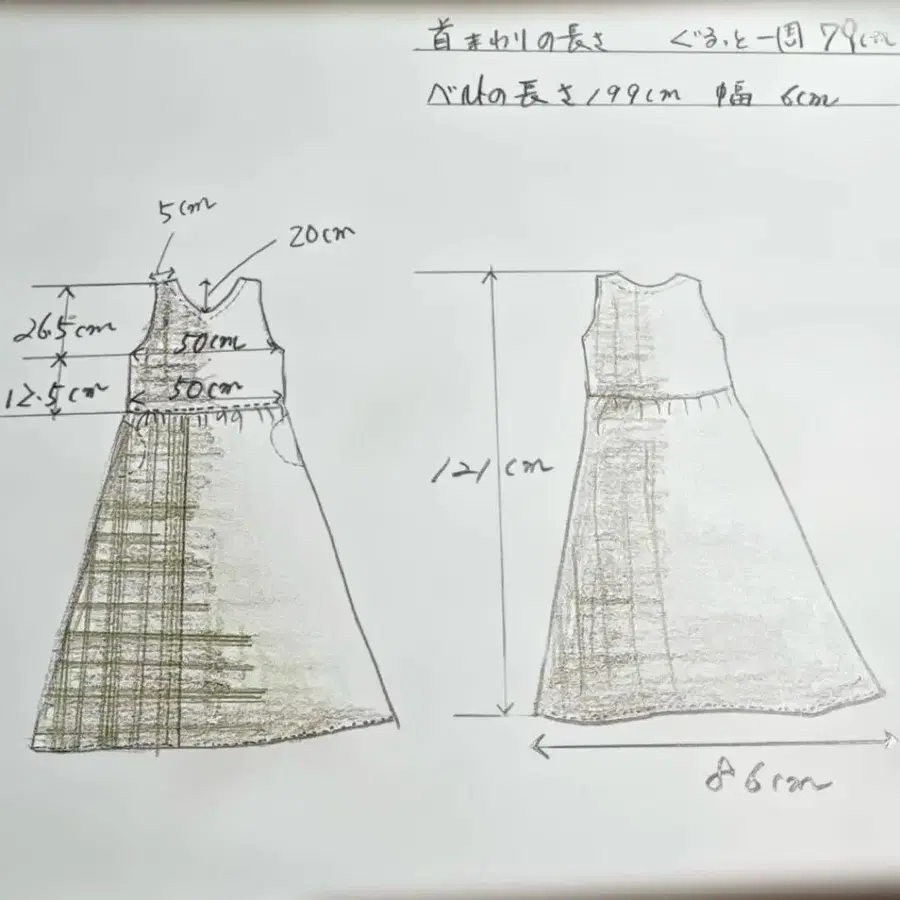 首まわりの長さ ぐるっと一周 79cm
ベルトの長さ199cm 幅 6cm
5cm
20cm
26.5cm
50cm
12.5cm
50cm
121cm
86cm